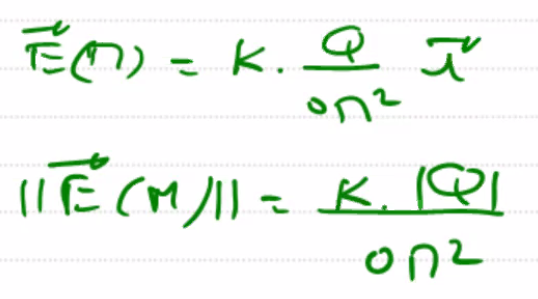 \vec{E}(M) = K \cdot \frac{Q}{OM^2} \vec{u}
||\vec{E}(M)|| = \frac{K \cdot |Q|}{OM^2}